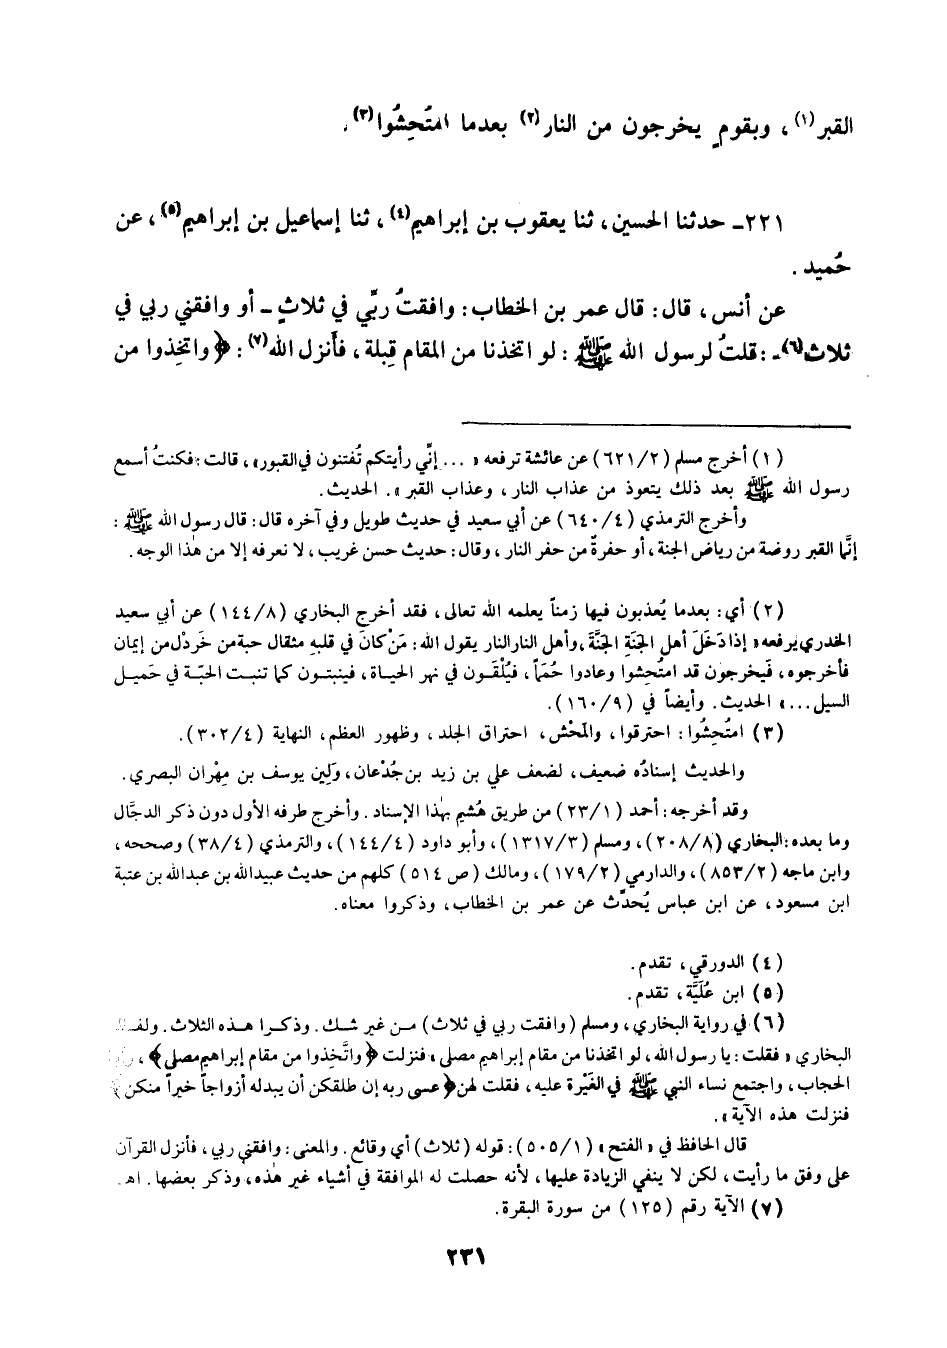 القبر(١)، وبقومٍ يخرجون من النار(٢) بعدما امتُحِشُوا(٣).
٢٢١- حدثنا الحسين، ثنا يعقوب بن إبراهيم(٤)، ثنا إسماعيل بن إبراهيم(٥)، عن
حُميد.
عن أنس، قال: قال عمر بن الخطاب: وافقتُ ربِّي في ثلاثٍ - أو وافقني ربي في
ثلاث(٦)-: قلتُ لرسول الله ﷺ: لو اتخذنا من المقام قِبلة، فأَنزل الله(٧): ﴿واتخِذوا من
(١) أخرج مسلم (٦٢١/٢) عن عائشة ترفعه « ... إنِّي رأيتكم تُفتنون في القبور»، قالت: فكنتُ أسمع
رسول الله ﷺ بعد ذلك يتعوذ من عذاب النار، وعذاب القبر». الحديث.
وأخرج الترمذي (٦٤٠/٤) عن أبي سعيد في حديث طويل وفي آخره قال: قال رسول الله ﷺ:
إنَّما القبر روضة من رياض الجنة، أو حفرةٌ من حفر النار، وقال: حديث حسن غريب، لا نعرفه إلا من هذا الوجه.
(٢) أي: بعدما يُعذبون فيها زمناً يعلمه الله تعالى، فقد أخرج البخاري (١٤٤/٨) عن أبي سعيد
الخدري يرفعه « إذا دَخَلَ أهل الجَنَّةِ الجَنَّةَ، وأهل النار النار يقول الله: مَنْ كانَ في قلبهِ مثقال حبة من خَردْل من إيمان
فأخرجوه، فَيخرجون قد امتُحِشوا وعادوا حُمَماً، فيُلْقَون في نهر الحياة، فينبتون كما تنبت الحبّة في حَميل
السيل...» الحديث. وأيضاً في (١٦٠/٩).
(٣) امتُحِشُوا: احترقوا، والمَحْش، احتراق الجلد، وظهور العظم، النهاية (٣٠٢/٤).
والحديث إسنادُه ضعيف، لضعف علي بن زيد بن جُدْعان، ولِين يوسف بن مِهْران البصري.
وقد أخرجه: أحمد (٢٣/١) من طريق هُشيم بهٰذا الإسناد. وأخرج طرفه الأول دون ذكر الدجَّال
وما بعده: البخاري (٢٠٨/٨)، ومسلم (١٣١٧/٣)، وأبو داود (١٤٤/٤)، والترمذي (٣٨/٤) وصححه،
وابن ماجه (٨٥٣/٢)، والدارمي (١٧٩/٢)، ومالك (ص ٥١٤) كلهم من حديث عبيدالله بن عبدالله بن عتبة
ابن مسعود، عن ابن عباس يُحدِّث عن عمر بن الخطاب، وذكروا معناه.
(٤) الدورقي، تقدم.
(٥) ابن عُلَيَّة، تقدم.
(٦) في رواية البخاري، ومسلم (وافقت ربي في ثلاث) من غير شك. وذكرا هذه الثلاث. ولفظ
البخاري « فقلت: يا رسول الله، لو اتخذنا من مقام إبراهيم مصلى، فنزلت ﴿واتَّخِذوا من مقام إبراهيم مصلى﴾،
الحجاب، واجتمع نساء النبي ﷺ في الغَيْرة عليه، فقلت لهن ﴿عسى ربه إن طلقكن أن يبدله أزواجاً خيراً منكن﴾
فنزلت هذه الآية».
قال الحافظ في « الفتح» (٥٠٥/١): قوله (ثلاث) أي وقائع. والمعنى: وافقني ربي، فأنزل القرآن
على وفق ما رأيت، لكن لا ينفي الزيادة عليها، لأنه حصلت له الموافقة في أشياء غير هذه، وذكر بعضها. اهـ.
(٧) الآية رقم (١٢٥) من سورة البقرة.
٢٣١